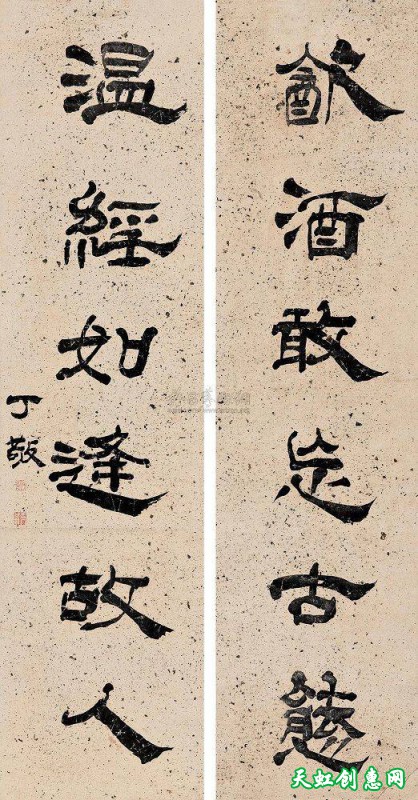 㱃酒敢忘古態
温經如逢故人
丁敬
天虹创惠网